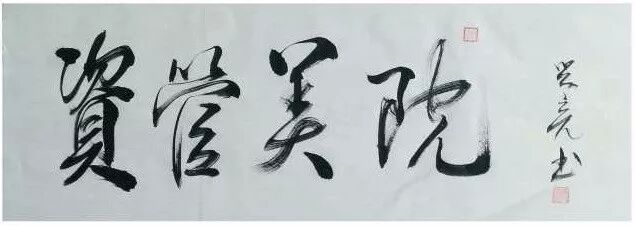 資管美院
亮书